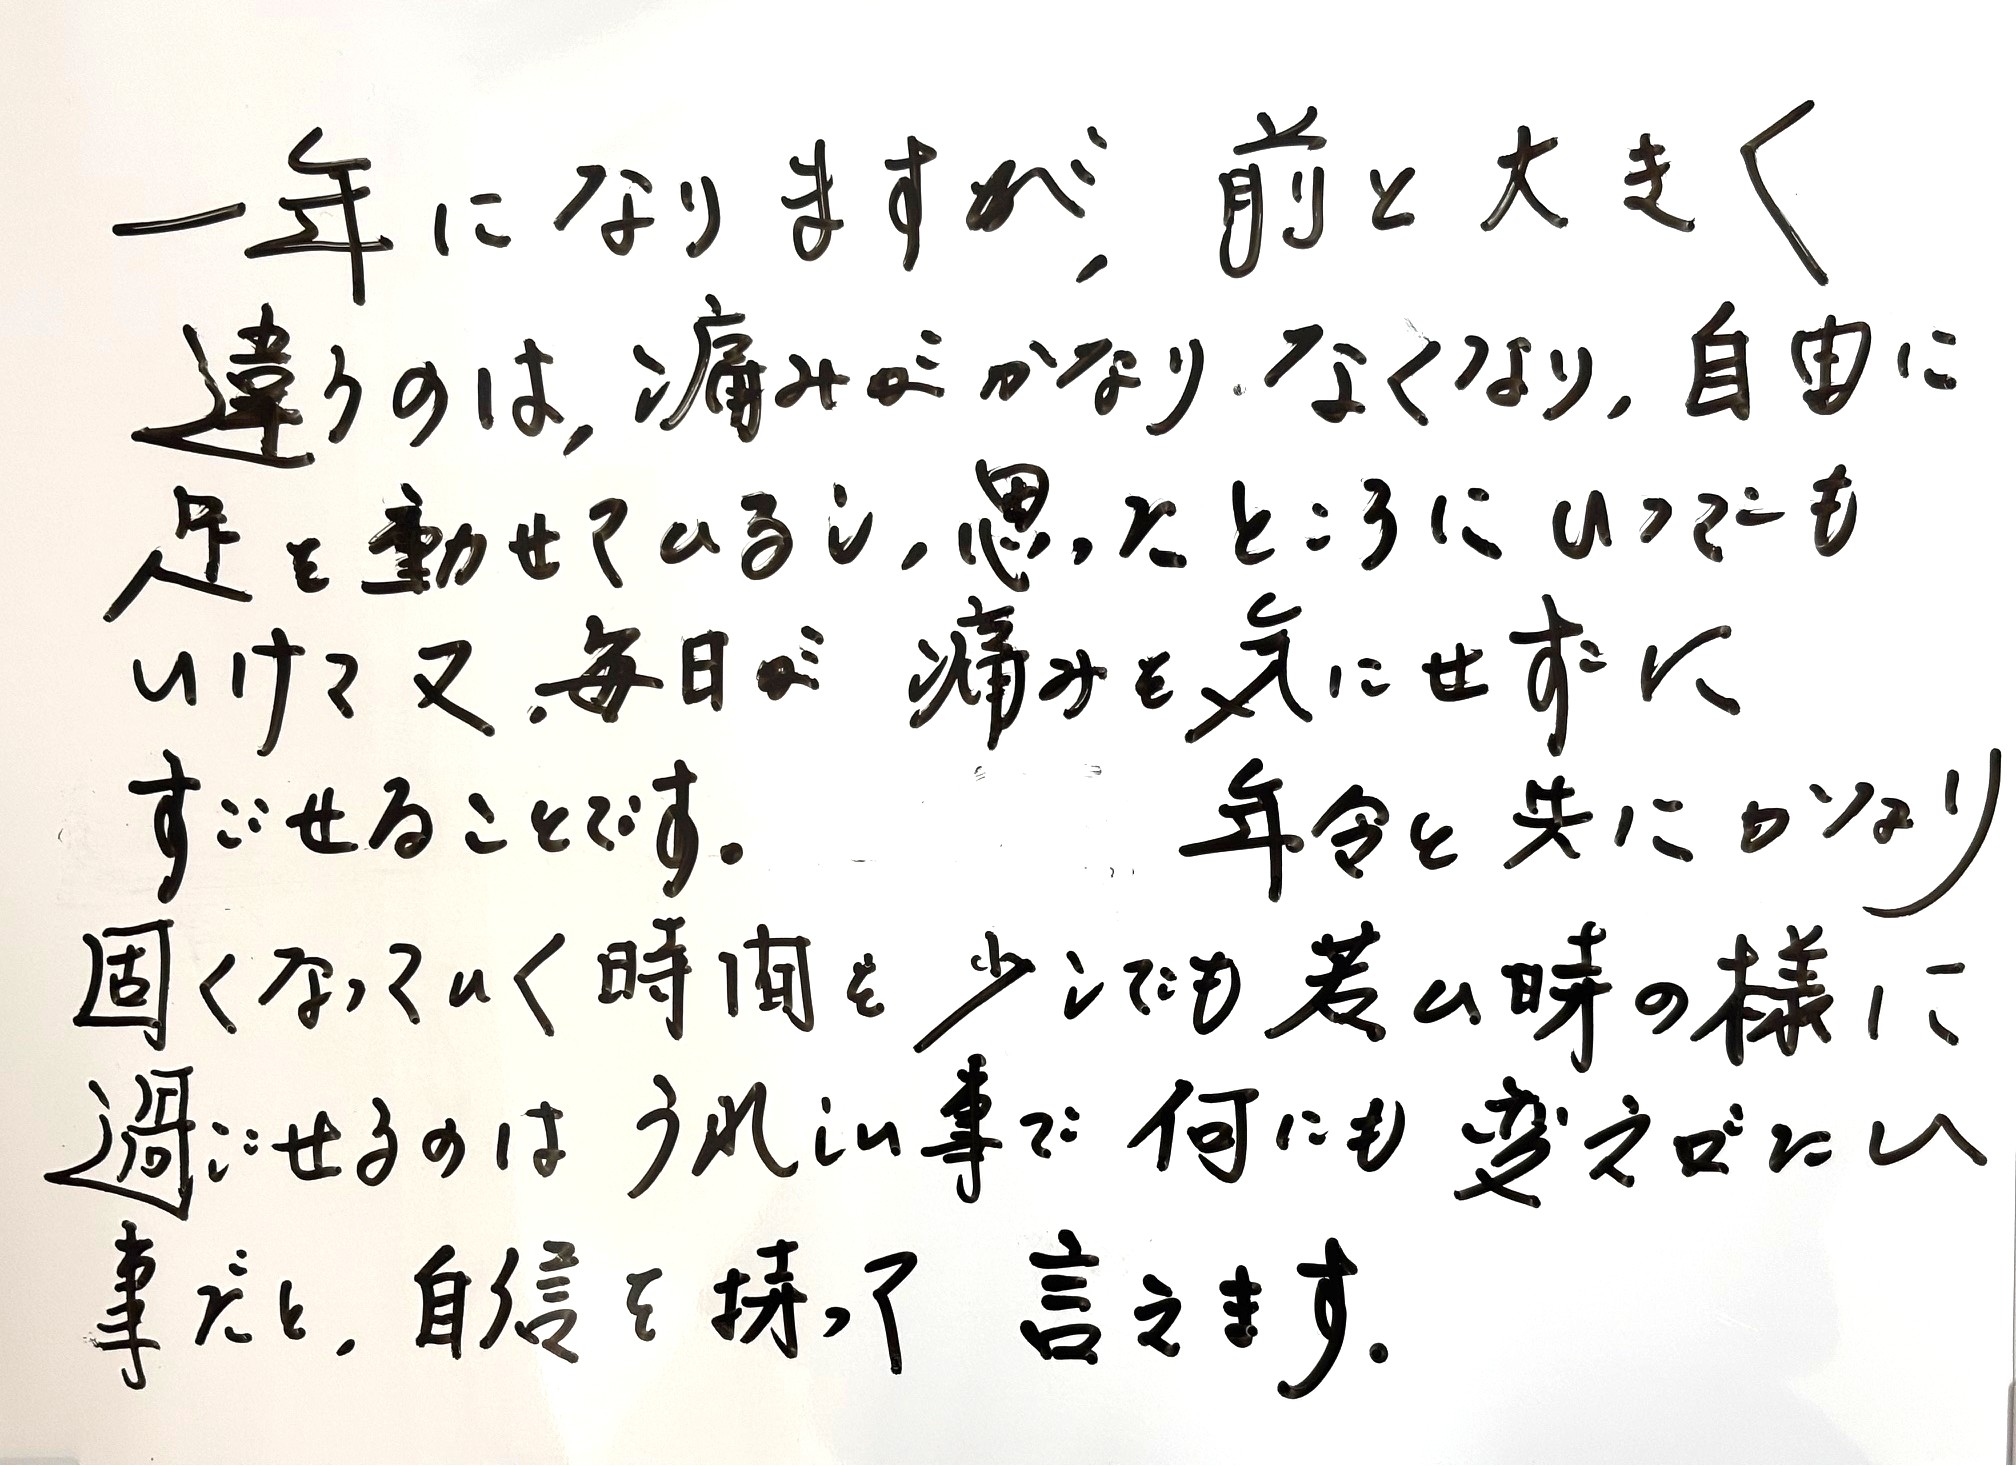 一年になりますが、前と大きく
違うのは、痛みがかなりなくなり、自由に
足を動せているし、思ったところにいつでも
いけて又、毎日が痛みを気にせずに
すごせることです。 年令と共にかなり
固くなっていく時間を少しでも若い時の様に
過ごせるのはうれしい事で何にも変えがたい
事だと、自信を持って言えます。